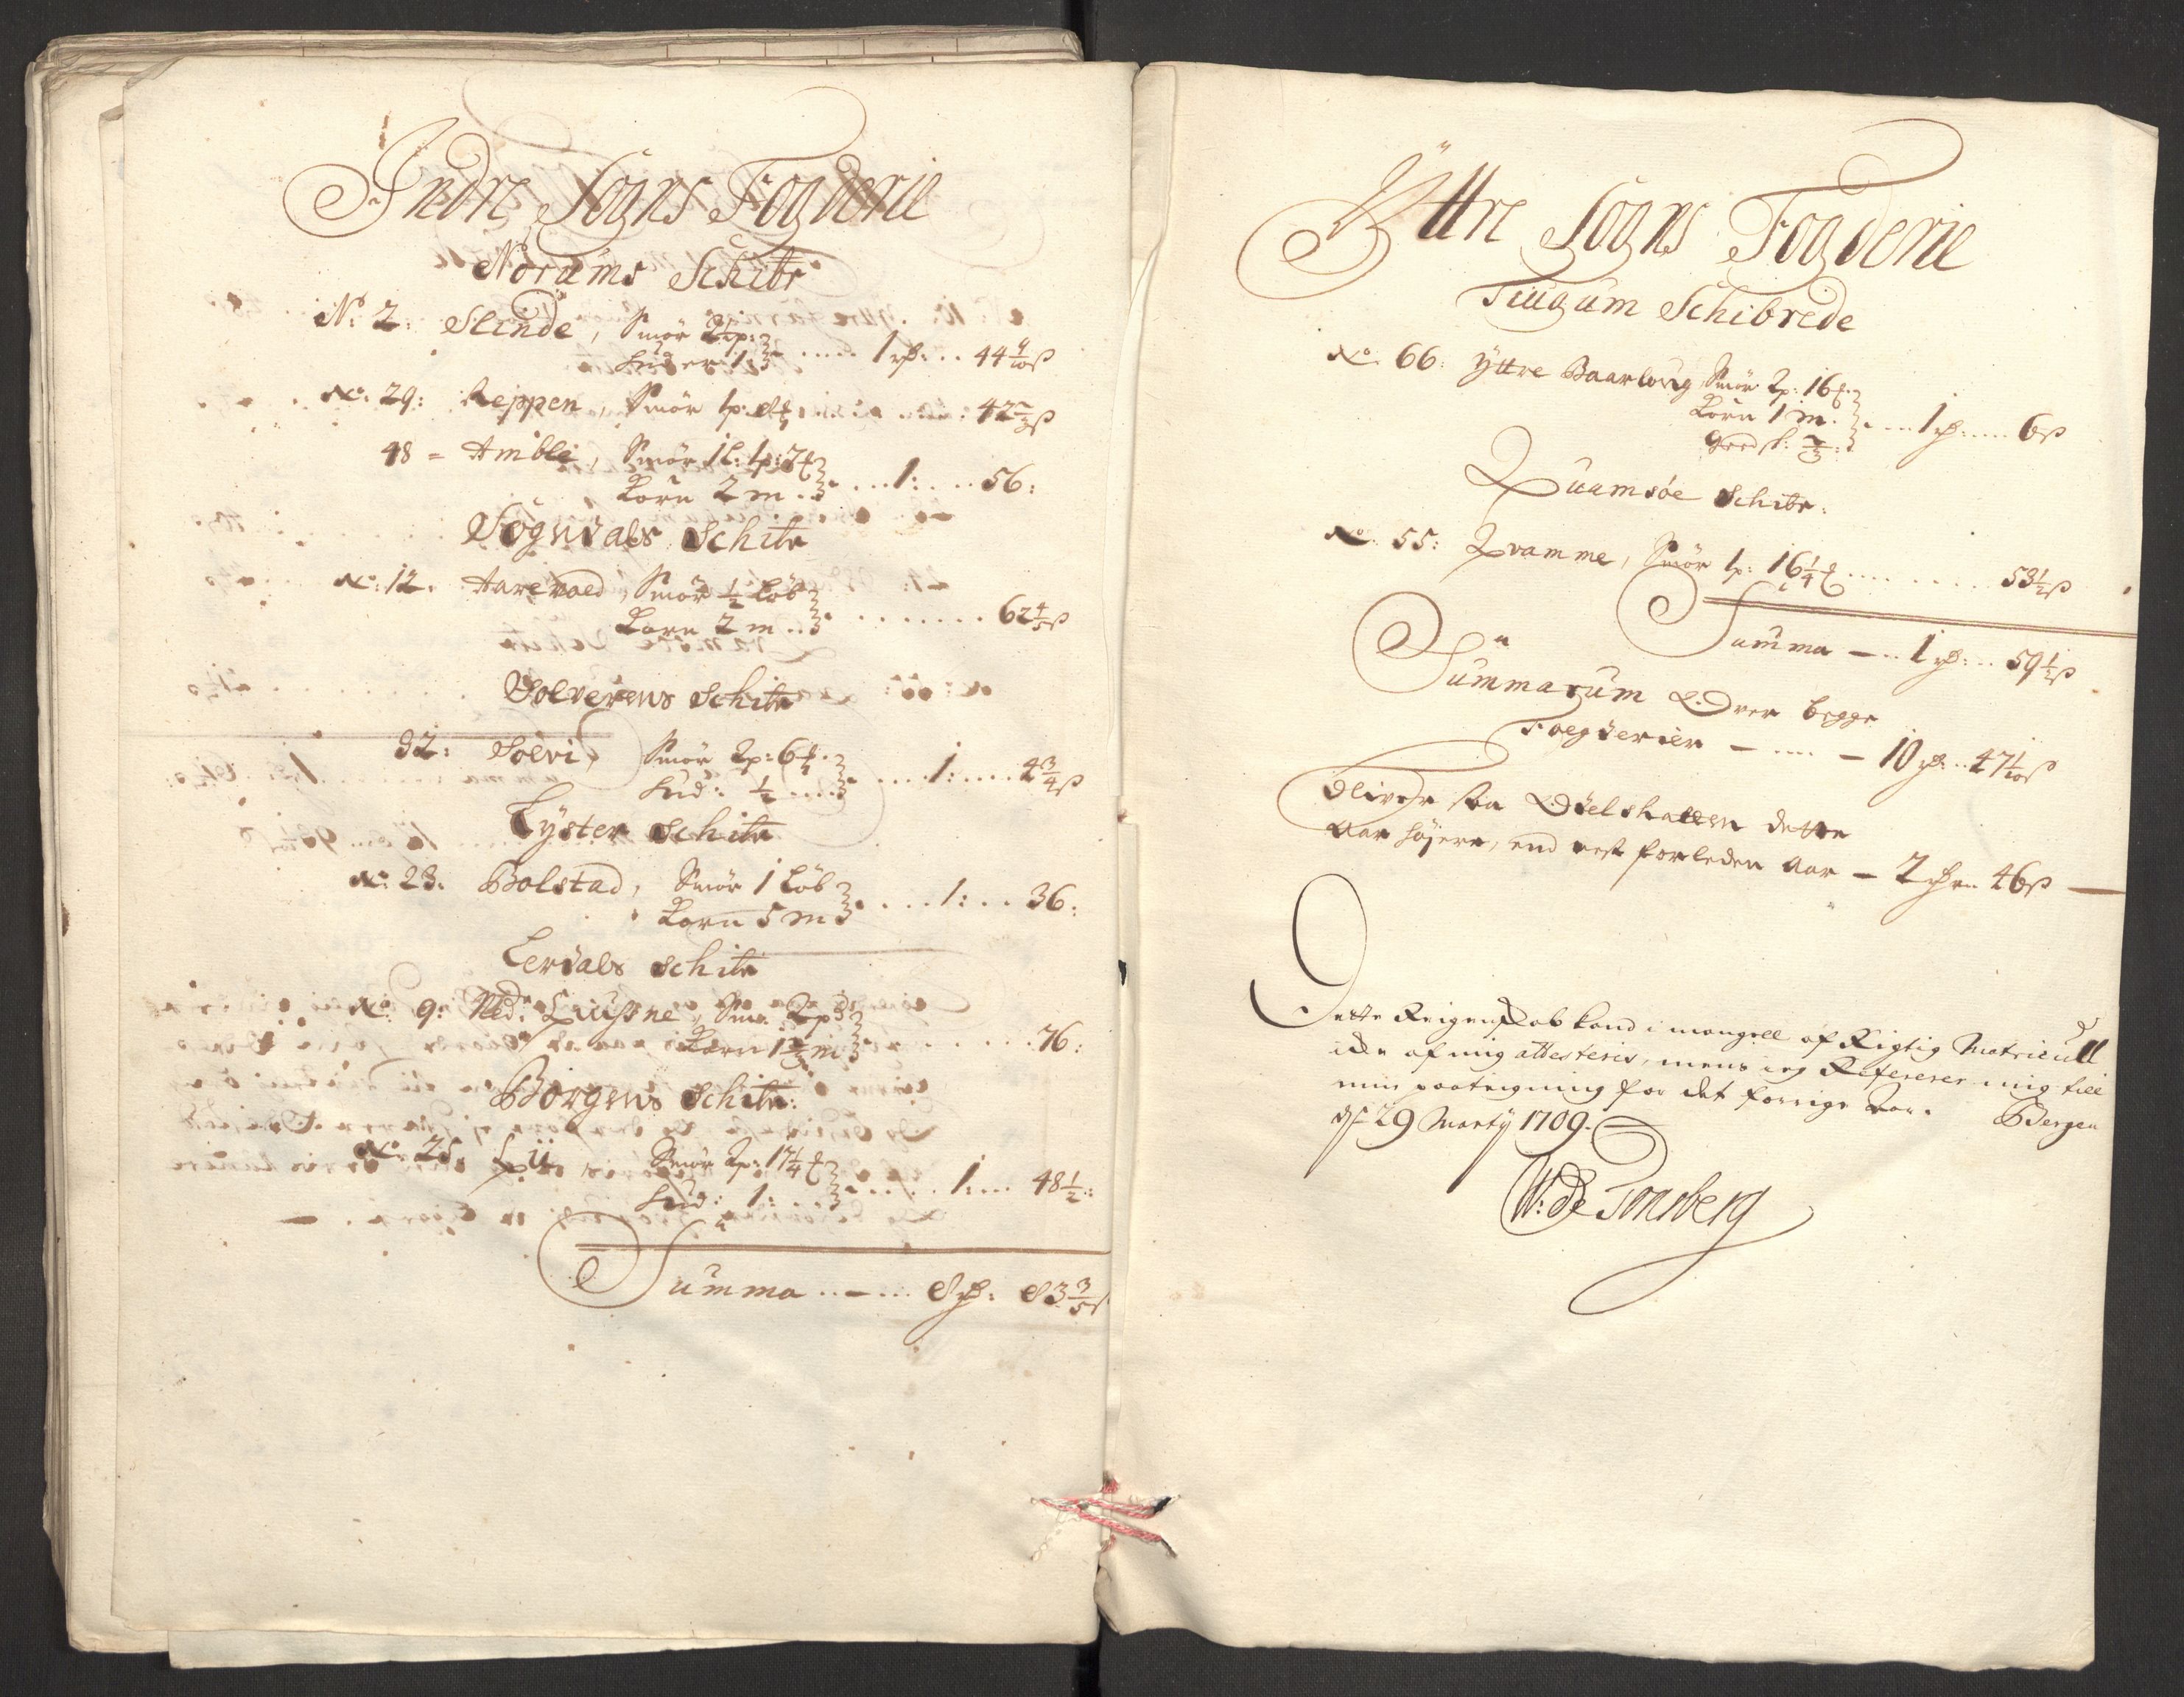 Indre Sogns Fogderie
Norums Schibr
No: 2: Slinde, Smør 2 p:
Huder 1: .... 1 rd: .. 44 4/10 ß
No: 29: Reppen, Smør 1 p: ... 42 2/3 ß
48 = Amble, Smør 1 L: 1 p: 7
Korn 2 m .. ... 1: ... 56:
Sogndals Schibr
No: 12. Aarevold, Smør 1/2 Løb
Korn 2 m .. ....... 62 4/5 ß
Solverens Schibr
32: Solvi, Smør 2 p: 6
Hud: 1/2 .... .... 1: .... 4 3/4 ß
Lyster Schibr
No: 23. Bolstad, Smør 1 Løb
Korn 5 m .... 1: ... 36:
Lerdals Schibr
No: 9: Ned: Qvissne, Smør 2 p
Korn 1 2/3 m ...... 76:
Borgens Schibr:
No: 25. Lii, Smør 2 p: 17 1/4
Hud: 1: ... ..... 1: ... 48 1/2:
Summa ..-... 8 rd: 83 3/5 ß
Yttre Sogns Fogderie
Tiugum Schibrede
No. 66: Yttre Baarloug, Smør 2 p: 16
Korn 1 m.
Geedsk: 2/3: ... 1 rd: .... 6 ß
Quamsøe Schibr.
No. 55: Qvamme, Smør 1 p: 16 1/4 ......... 53 1/2 ß
Summa - .. 1 rd: .. 59 1/2 ß
Summarum Over begge
Fogderier - .... - 10 rd: .. 47 1/10 ß
Bliver saa Odelskatten dette
Aar højere, end nest forleden Aar - 2 rd .. 46 ß -
Dette Reigenskab kand i mangell af Rigtig Matricull
icke af mig attesteris, mens ieg Refererer mig till
min paategning for det forrige Aar. Bergen
d: 29 Marty 1709.
W: de Tonsberg